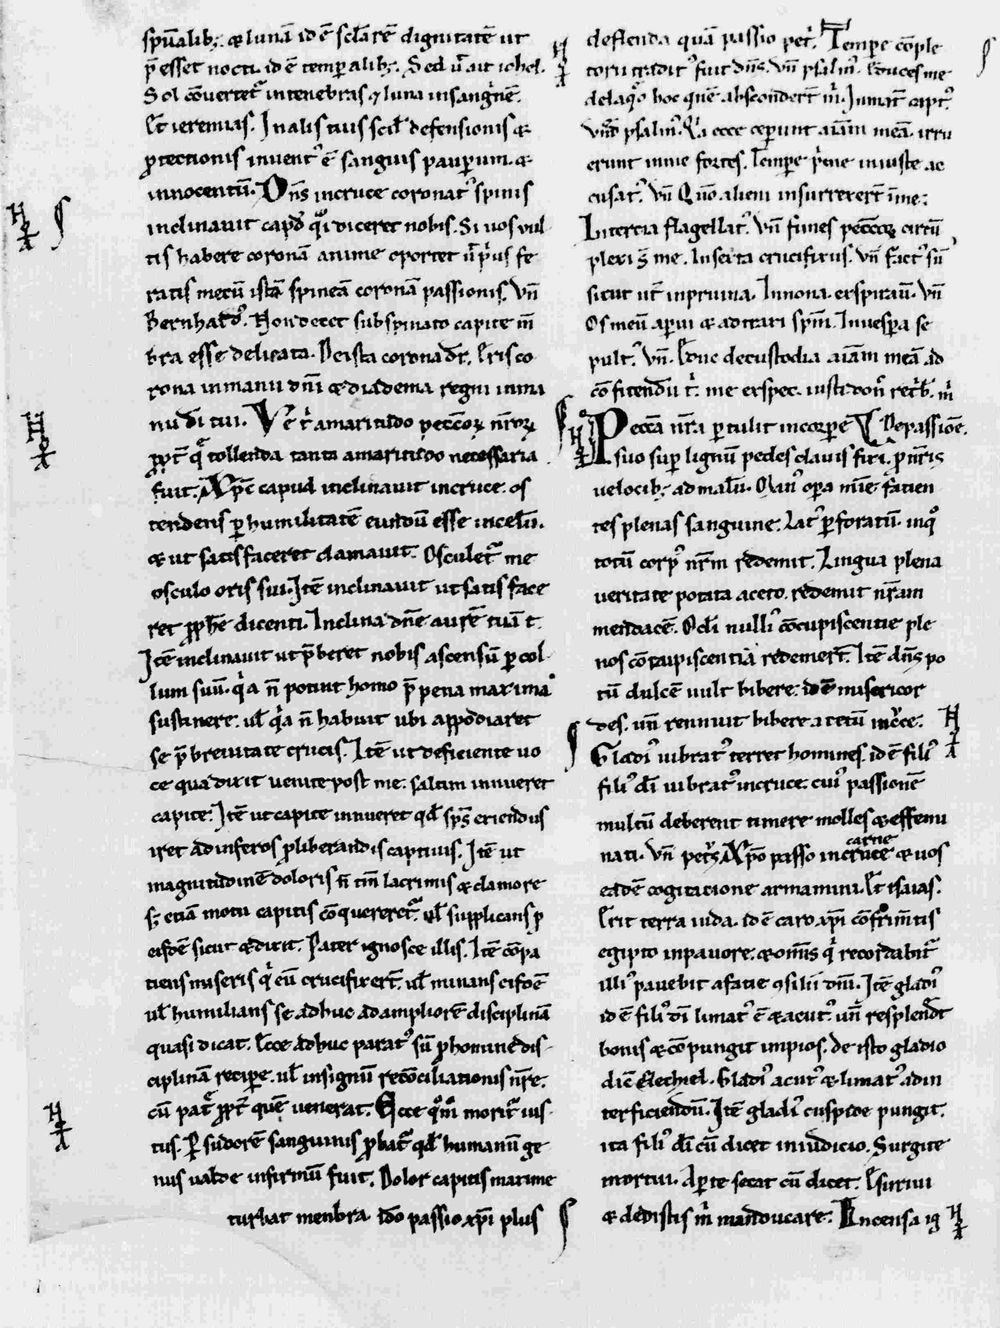 spũalib; & lunã id ẽ sclãrẽ dignitatẽ ut
p̃ esset nocti. id ẽ temꝑalib;. Sed ũ ait iohel.
Sol cõuertet᷑ in tenebras. ⁊ luna in sang̃nẽ.
Et ieremias. In alis tuis scił defensionis &
ꝓtectionis inuent᷒ ẽ sanguis pauꝑum. &
innocentũ. Dñs in cruce coronat᷒ spinis
inclinauit capđ q̃i diceret nobis. Si uos uul
tis habere coronã anime oportet ũ p̃us fe
ratis mecũ istã spineã coronã passionis. Vñ
Bernhard᷒. Non decet sub spinato capite m̃
bra esse delicata. De ista corona dr̃. Eris co
rona in manu dñi & diadema regni in ma
nu di tui. Ve t̃ amaritudo peccoꝝ nr̃oꝝ
ꝓpt̃ q̃ tollenda tanta amaritudo necessaria
fuit. Xp̃c capud inclinauit in cruce. os
tendens ꝑ humilitatẽ eundũ esse in celũ.
& ut satisfaceret clamauit. Osculet᷑ me
osculo oris sui. Itẽ inclinauit ut satis face
ret ꝓphẽ dicenti. Inclina dñe aurẽ tuã t̃.
Itẽ inclinauit ut p̃beret nobis ascensũ ꝑ col
lum suũ. q̃a ñ potuit homo p̃ pena maxima
sustinere. uł q̃a ñ habuit ubi appodiaret
se p̃ breuitate crucis. Itẽ ut deficiente uo
ce qua dixit uenite post me. saltim innueret
capite. Itẽ ut capite innueret qđ sp̃s exiendus
iret ad inferos ꝓ liberandis captiuis. Itẽ ut
magnitudinẽ doloris ñ tm̃ lacrimis & clamore
s; etiã motu capitis cõquereret᷑. uł supplicans ꝓ
eisdẽ sicut & dixit. Pater ignosce illis. Itẽ cõpa
tiens miseris q̃ eũ crucifixert̃. uł minans eisdẽ
uł humilians se adhuc ad ampliorẽ disciplinã
quasi dicat. Ecce adhuc parat᷒ sũ ꝓ homine dis
ciplinã recipe. uł in signũ recõciliationis nr̃e.
cũ pat̃ ꝓpt̃ quẽ uenerat. Ecce qm̃ morit᷑ ius
tus. Per sudorẽ sanguinis ꝓbat᷑ qđ humanũ ge
nus ualde infirmũ fuit. Dolor capitis maxime
turbat menbra. Ido passio xp̃i plus
deflenda quã passio pet᷑. Tempe cõple
torii tradit᷒ fuit dñs. Vñ psalm̃. Educes me
de laq̃o hoc quẽ absconder̃t m̃. In mat̃ capt᷒.
Vñ psalm̃. Q̃a ecce ceperunt aiam meã. irru
erunt in me fortes. Tempe p̃me iniuste ac
cusat᷒. Vñ Qm̃ alieni insurrexert̃ ĩ me.
In tercia flagellat᷒. Vñ funes peccoꝝ circũ
plexi s̃ me. In sexta crucifixus. Vñ fact᷒ sũ
sicut ut᷑ in pruina. In nona. expirauit. Vñ
Os meũ aperui & adtraxi spm̃. In uespa se
pult᷒. Vñ. Educ de custodia aiam meã. ad
cõfitendũ t̃. me expec. iusti. don̄ ret᷑b. m̃
Pecca nr̃a ꝑtulit in corꝑe De passiõe.
suo suꝑ lignũ pedes clauis fixi. ꝓ nr̃is
uelocib; ad malũ. Man᷒ opa mie. facien
tes plenas sanguine. Lat᷒ ꝑforatũ. in q̊
totũ corp᷒ nr̃m redemit. Lingua plena
ueritate potata aceto. redemit nr̃am
mendacẽ. Ocłi nulli᷒ cõcupiscentie ple
nos cõcupiscentia redemert̃. Itẽ dñs po
tũ dulcẽ uult bibere. id ẽ misericor
des. uñ rennuit bibere acetũ in cruce.
Gladi᷒ uibrat᷒ terret homines. id ẽ fili᷒
fili᷒ di uibrat᷒ in cruce. cui᷒ passionẽ
multũ deberent timere molles & effemi
nati. Vñ pet᷒. Xp̃o passo in carne & uos
eadẽ cogitatione armamini. Et isaias.
Erit terra iuda. id ẽ caro xp̃i cõfrim̃tis
egipto in pauore. & om̃is q̃ recordabit᷑
illi᷒ pauebit a facie ꝯsilii dñi. Itẽ gladi᷒
id ẽ fili᷒ di limat᷒ ẽ & acut᷒. uñ resplendet
bonis & cõpungit impios. de isto gladio
dic̃ Ezechiel. Gladi᷒ acut᷒ & limat᷒ ad in
terficiendũ. Itẽ gladi᷒ cuspide pungit.
ita fili᷒ di cũ dicet in iudicio. Surgite
mortui. Aperte secat cũ dicet. Esuriui
& dedistis m̃ manducare. Incensa ig